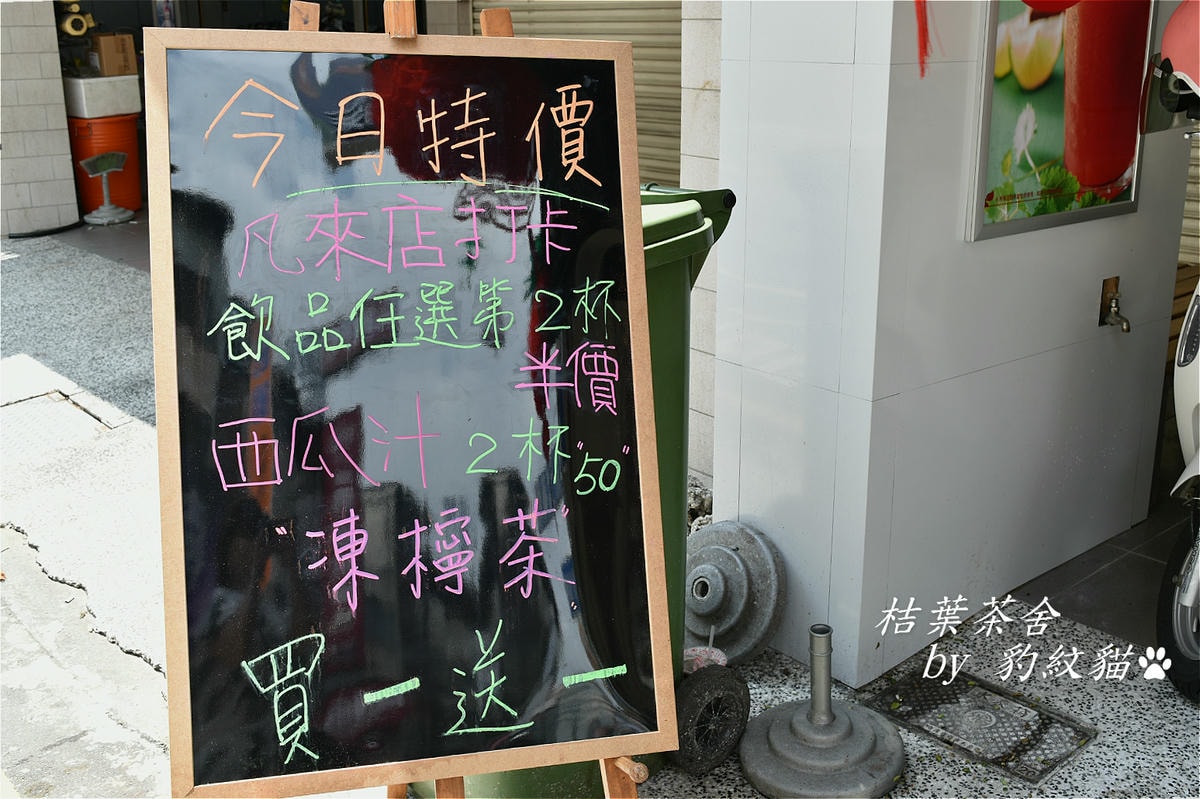 今日特價
凡來店打卡
飲品任選第2杯
半價
西瓜汁2杯"50"
"凍檸茶"
買一送一
桔葉茶舍
by 豹紋貓